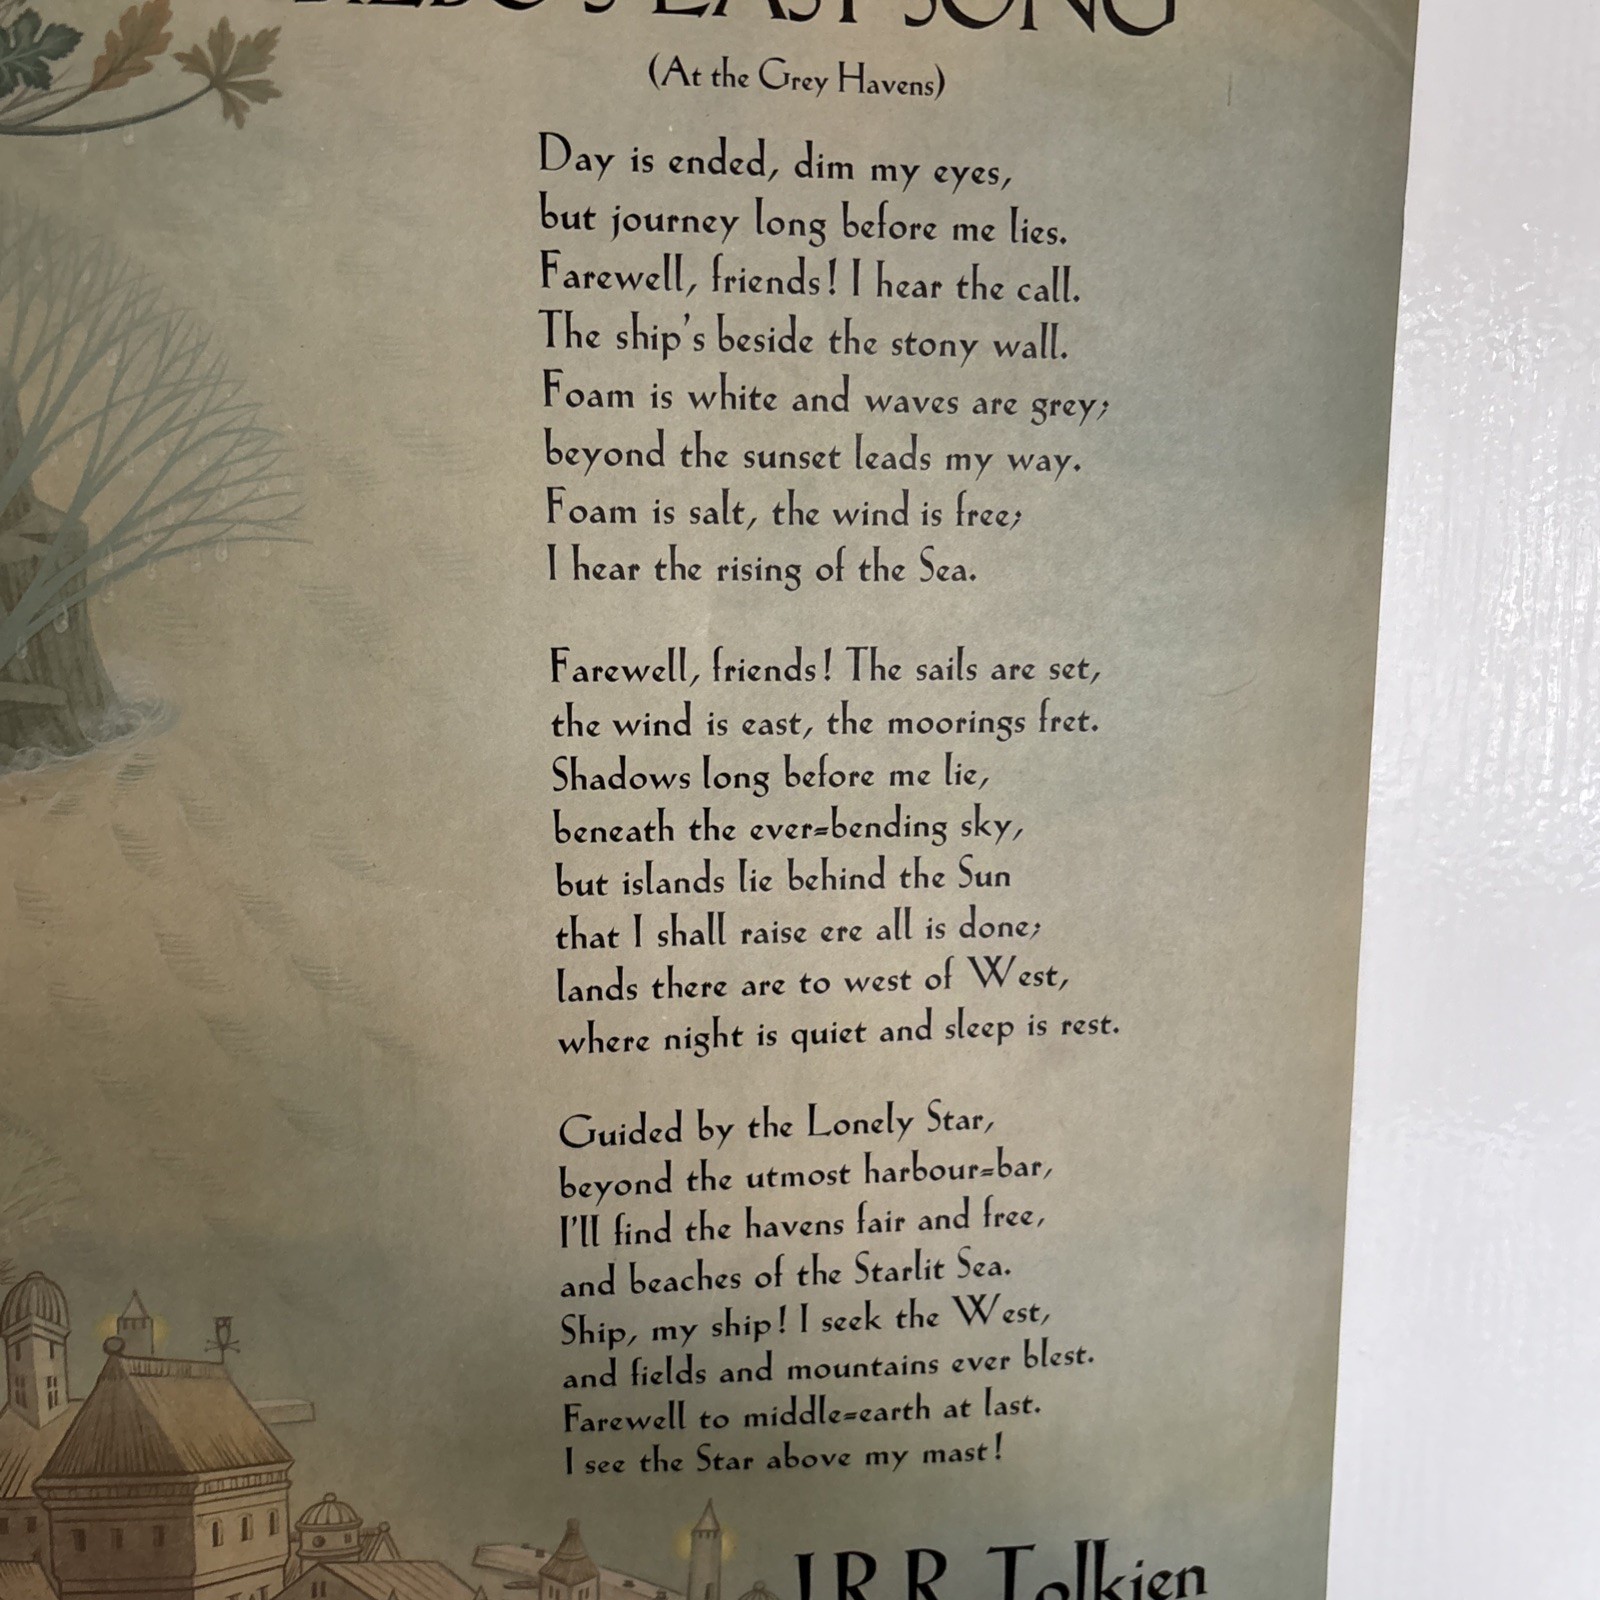 BILBO'S LAST SONG
(At the Grey Havens)
Day is ended, dim my eyes,
but journey long before me lies.
Farewell, friends! I hear the call.
The ship's beside the stony wall.
Foam is white and waves are grey;
beyond the sunset leads my way.
Foam is salt, the wind is free;
I hear the rising of the Sea.
Farewell, friends! The sails are set,
the wind is east, the moorings fret.
Shadows long before me lie,
beneath the ever=bending sky,
but islands lie behind the Sun
that I shall raise ere all is done;
lands there are to west of West,
where night is quiet and sleep is rest.
Guided by the Lonely Star,
beyond the utmost harbour=bar,
I'll find the havens fair and free,
and beaches of the Starlit Sea.
Ship, my ship! I seek the West,
and fields and mountains ever blest.
Farewell to middle=earth at last.
I see the Star above my mast!
J.R.R. Tolkien